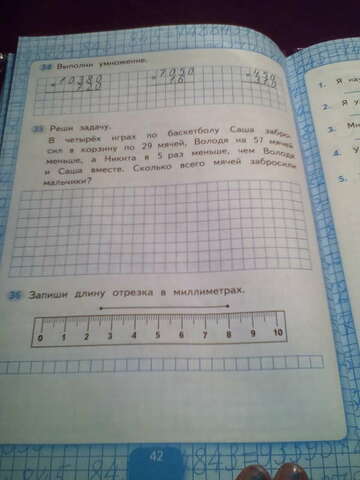 34 Выполни умножение.
×10380 ×7050 ×450
720
35 Реши задачу.
В четырёх играх по баскетболу Саша забро-
сил в корзину по 29 мячей, Володя на 57 мячей
меньше, а Никита в 5 раз меньше, чем Володя
и Саша вместе. Сколько всего мячей забросили
мальчики?
36 Запиши длину отрезка в миллиметрах.
0 1 2 3 4 5 6 7 8 9 10
42
1.
2. Я
3.
4. У
5.